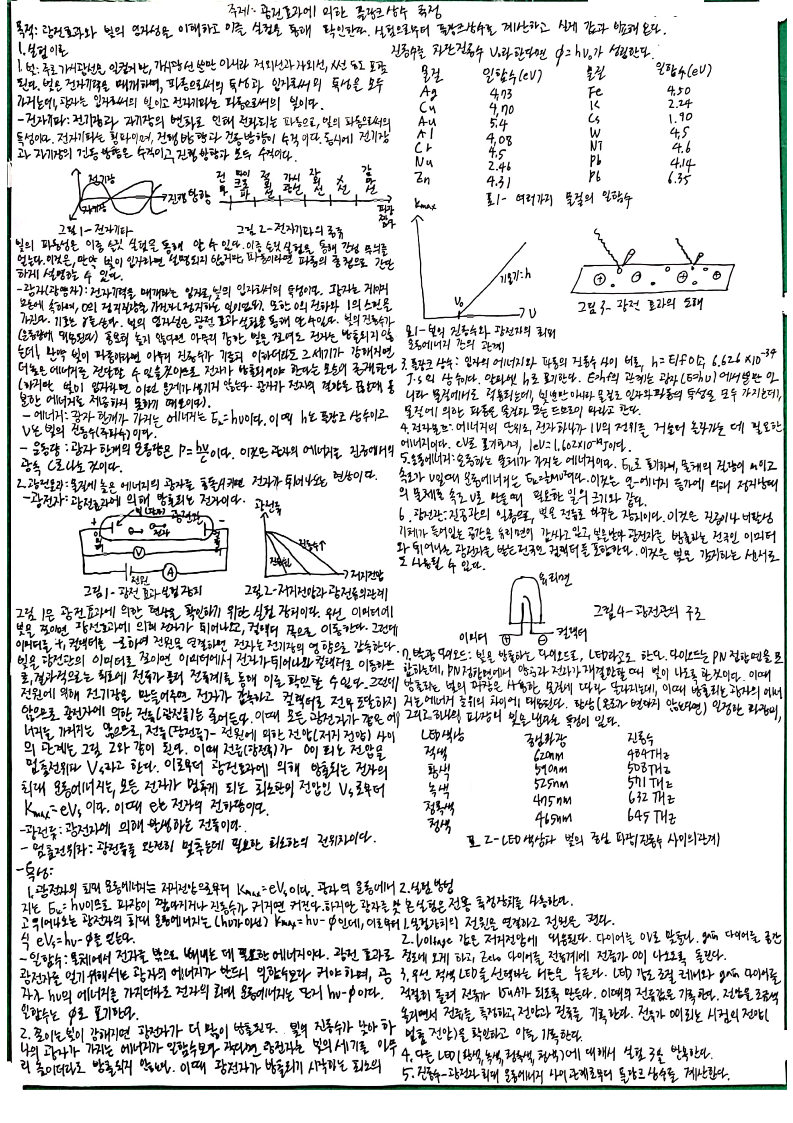 주제: 광전효과에 의한 플랑크 상수 측정
목적: 광전효과와 빛의 입자성을 이해하고 이를 실험을 통해 확인한다. 실험으로부터 플랑크상수를 계산하고 실제 값과 비교해 본다.
1. 실험이론
1. 빛: 주로 가시광선을 일컫지만, 가시광선 뿐만 아니라 적외선과 자외선, X선 등도 포함
된다. 빛은 전자기력을 매개하며, 파동으로써의 특성과 입자로써의 특성을 모두
가지는데, 광자는 입자로써의 빛이고 전자기파는 파동으로써의 빛이다.
- 전자기파: 전기장과 자기장의 변화로 인해 전파되는 파동으로, 빛의 파동으로써의
특성이다. 전자기파는 횡파이며, 진행 방향과 진동 방향이 수직이다. 동시에 전기장
과 자기장의 진동 방향은 수직이고, 진행 방향과 모두 수직이다.
전기장
자기장
진행 방향
전파
마이크로파
적외선
가시광선
자외선
X선
감마선
파장
짧다
그림 1 - 전자기파
그림 2 - 전자기파의 종류
빛의 파동성은 이중 슬릿 실험을 통해 알 수 있다. 이중 슬릿 실험을 통해 간섭 무늬를
얻는다. 이것은, 만약 빛이 입자라면 설명되지 않지만, 파동이라면 파동의 중첩으로 간단
하게 설명할 수 있다.
- 광자(광양자): 전자기력을 매개하는 입자로, 빛의 입자로써의 특성이다. 광자는 게이지
보손에 속하며, 0의 정지질량을 가진다(정지하는 일이 없다). 또한 0의 전하와 1의 스핀을
가진다. 기호는 γ를 쓴다. 빛의 입자성은 광전 효과 실험을 통해 알 수 있다. 빛의 진동수가
(운동량에 대응된다) 충분히 높지 않다면 아무리 강한 빛을 쬐어도 전자는 방출되지 않
는데, 만약 빛이 파동이라면 아무리 진동수가 기준치 이하더라도 그 세기가 강해지면
더 높은 에너지를 전달할 수 있을 것이므로 전자가 방출되어야 한다는 모순이 존재한다
(하지만 빛이 입자라면 이런 문제가 생기지 않는다. 광자가 전자의 결합을 끊는데 충
분한 에너지를 제공하지 못하기 때문이다).
- 에너지: 광자 한개가 가지는 에너지는 Eₖ=hυ이다. 이때 h는 플랑크 상수이고
υ는 빛의 진동수(주파수)이다.
- 운동량: 광자 한개의 운동량은 P=hυ/c이다. 이것은 광자의 에너지를 진공에서의
광속 C로 나눈 것이다.
2. 광전효과: 물질에 높은 에너지의 광자를 충돌시키면 전자가 튀어나오는 현상이다.
- 광전자: 광전효과에 의해 방출되는 전자이다.
빛(광자)
광전관
전자
V
전원
A
광전류
진동수↑
저지전압
그림 1 - 광전 효과 실험 장치
그림 2 - 저지전압과 광전류의 관계
그림 1은 광전효과에 의한 현상을 확인하기 위한 실험 장치이다. 우선 이미터에
빛을 쪼이면 광전효과에 의해 전자가 튀어나오고, 컬렉터 쪽으로 이동한다. 그런데
이미터를 +, 컬렉터를 -로 하여 전원을 연결하면 전자는 전기장의 영향으로 감속한다.
빛을 광전관의 이미터로 쪼이면 이미터에서 전자가 튀어나와 컬렉터로 이동하므
로, 결과적으로는 회로에 전류가 흘러 전류계를 통해 이를 확인할 수 있다. 그런데
전원에 의해 전기장을 만들어주면 전자가 감속하고 컬렉터로 전부 도달하지
않으므로 광전자에 의한 전류(광전류)는 줄어든다. 이때 모든 광전자가 같은 에
너지를 가지지는 않으므로, 전류(광전류) - 전원에 의한 전압(저지 전압) 사이
의 관계는 그림 2와 같이 된다. 이때 전류(광전류)가 0이 되는 전압을
멈춤전위차 Vₛ라고 한다. 이로부터 광전효과에 의해 방출되는 전자의
최대 운동에너지는, 모든 전자가 멈추게 되는 최소한의 전압인 Vₛ로부터
Kmax=eVₛ이다. 이때 e는 전자의 전하량이다.
- 광전류: 광전자에 의해 발생하는 전류이다.
- 멈춤전위차: 광전류를 완전히 멈추는데 필요한 최소한의 전위차이다.
- 특성:
1. 광전자의 최대 운동에너지는 저지전압으로부터 Kmax=eVₛ이다. 광자의 운동에너
지는 Eₖ=hυ이므로 파장이 짧아지거나 진동수가 커지면 커진다. 하지만 광자를 맞
고 튀어나오는 광전자의 최대 운동에너지는 (hυ가 아닌) Kmax=hυ-φ인데, 이로부터
식 eVₛ=hυ-φ를 얻는다.
- 일함수: 물체에서 전자를 밖으로 빼내는 데 필요한 에너지이다. 광전 효과로
광전자를 얻기 위해서는 광자의 에너지가 반드시 일함수보다 커야 하며, 광
자가 hυ의 에너지를 가지더라도 전자의 최대 운동에너지는 단지 hυ-φ이다.
일함수는 φ로 표기한다.
2. 쪼이는 빛이 강해지면 광전자가 더 많이 방출된다. 빛의 진동수가 낮아 하
나의 광자가 가지는 에너지가 일함수보다 작다면 광전자는 빛의 세기를 아무
리 높이더라도 방출되지 않는다. 이때 광전자가 방출되기 시작하는 최소의
진동수를 차단진동수 υ₀라 한다면 φ=hυ₀가 성립한다.
물질 일함수(eV) 물질 일함수(eV)
Ag 4.73 Fe 4.50
Cu 4.70 K 2.24
Au 5.4 Cs 1.90
Al 4.08 W 4.5
Cr 4.5 Ni 4.6
Na 2.46 Pb 4.14
Zn 4.31 Pt 6.35
표1 - 여러가지 물질의 일함수
Kmax
기울기: h
υ₀
υ
그림 3 - 광전 효과의 모형
표1 - 빛의 진동수와 광전자의 최대
운동에너지 간의 관계
3. 플랑크 상수: 입자의 에너지와 파동의 진동수 사이 비로, h=E/f이고, 6.626×10⁻³⁴
J·s의 상수이다. 알파벳 h로 표기한다. E와 f의 관계는 광자(E=hυ)에서뿐만 아
니라 물질에서도 적용되는데, 빛뿐만 아니라 물질도 입자와 파동의 특성을 모두 가지는데,
물질에 의한 파동을 물질파 또는 드브로이 파라고 한다.
4. 전자볼트: 에너지의 단위로, 전자 하나가 1V의 전위를 거슬러 올라가는 데 필요한
에너지이다. eV로 표기하며, 1eV=1.602×10⁻¹⁹J이다.
5. 운동에너지: 운동하는 물체가 가지는 에너지이다. Eₖ로 표기하며, 물체의 질량이 m이고
속도가 v일때 운동에너지는 Eₖ=½mv²이다. 이것은 일-에너지 등가에 의해 정지상태
의 물체를 속도 v로 만들 때 필요한 일의 크기와 같다.
6. 광전관: 진공관의 일종으로, 빛을 전류로 바꾸는 장치이다. 이것은 진공이나 비활성
기체가 들어있는 공간을 유리면이 감싸고 있고, 빛을 받아 광전자를 방출하는 전극인 이미터
와 튀어나온 광전자를 받는 전극인 컬렉터를 포함한다. 이것은 빛을 감지하는 센서로
도 사용될 수 있다.
유리면
이미터
컬렉터
그림4 - 광전관의 구조
7. 발광 다이오드: 빛을 방출하는 다이오드로, LED라고도 한다. 다이오드는 PN 접합면을 포
함하는데, PN 접합면에서 양공과 전자가 재결합할 때 빛이 나오는 한 것이다. 이때
방출되는 빛의 파장은 사용한 물질에 따라 달라지는데, 이때 방출되는 광자의 에너
지는 에너지 준위의 차이에 대응된다. 항상 (온도가 변하지 않는다면) 일정한 파장의,
그리고 하나의 파장의 빛을 낸다는 특징이 있다.
LED 색상 중심파장 진동수
적색 620nm 484THz
황색 590nm 508THz
녹색 525nm 571THz
청록색 475nm 632THz
청색 465nm 645THz
표 2 - LED 색상과 빛의 중심 파장/진동수 사이의 관계
2. 실험 방법
본 실험은 전용 측정장치를 사용한다.
1. 실험장치의 전원을 연결하고 전원을 켠다.
2. Voltage 값은 저지전압에 대응된다. 다이어는 0V로 맞춘다. gain 다이어는 중간
정도에 오게 하고, zero 다이어를 전류계에 전류가 0이 나오도록 돌린다.
3. 우선 적색 LED를 선택하는 버튼을 누른다. LED 강도 조절 레버와 gain 다이어를
적절히 돌려 전류가 15uA가 되도록 만든다. 이때의 전류값을 기록한다. 전압을 조금씩
올리면서 전류를 측정하고, 전압과 전류를 기록한다. 전류가 0이 되는 시점의 전압(
멈춤 전압)을 확인하고 이를 기록한다.
4. 다른 LED(황색, 녹색, 청록색, 청색)에 대해서 실험 3을 반복한다.
5. 진동수-광전자 최대 운동에너지 사이 관계로부터 플랑크 상수를 계산한다.